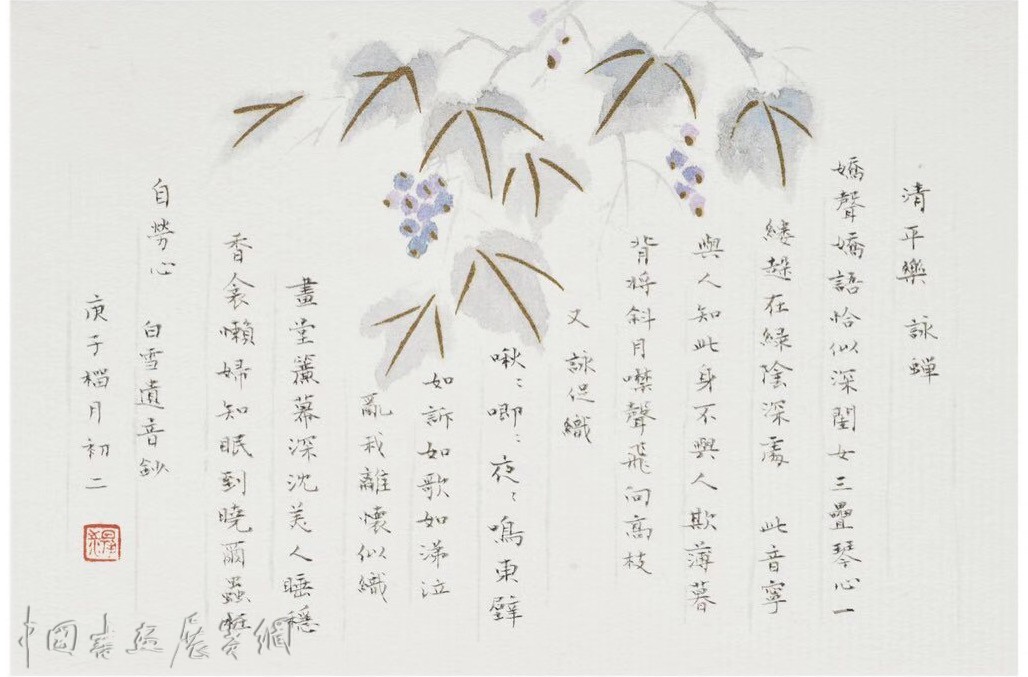 清平樂 詠蟬
嬌聲嬌語恰似深閨女三疊琴心一
縷趓在綠陰深處 此音寧
與人知此身不與人欺薄暮
背將斜月噤聲飛向高枝
又 詠促織
啾：唧：夜：鳴東壁
如訴如歌如潚泣
亂我離懷似織
畫堂簾幕深沈美人睡穩
香衾懶婦知眠到曉爾蟲枉
自勞心 白雪遺音鈔
庚子榴月初二